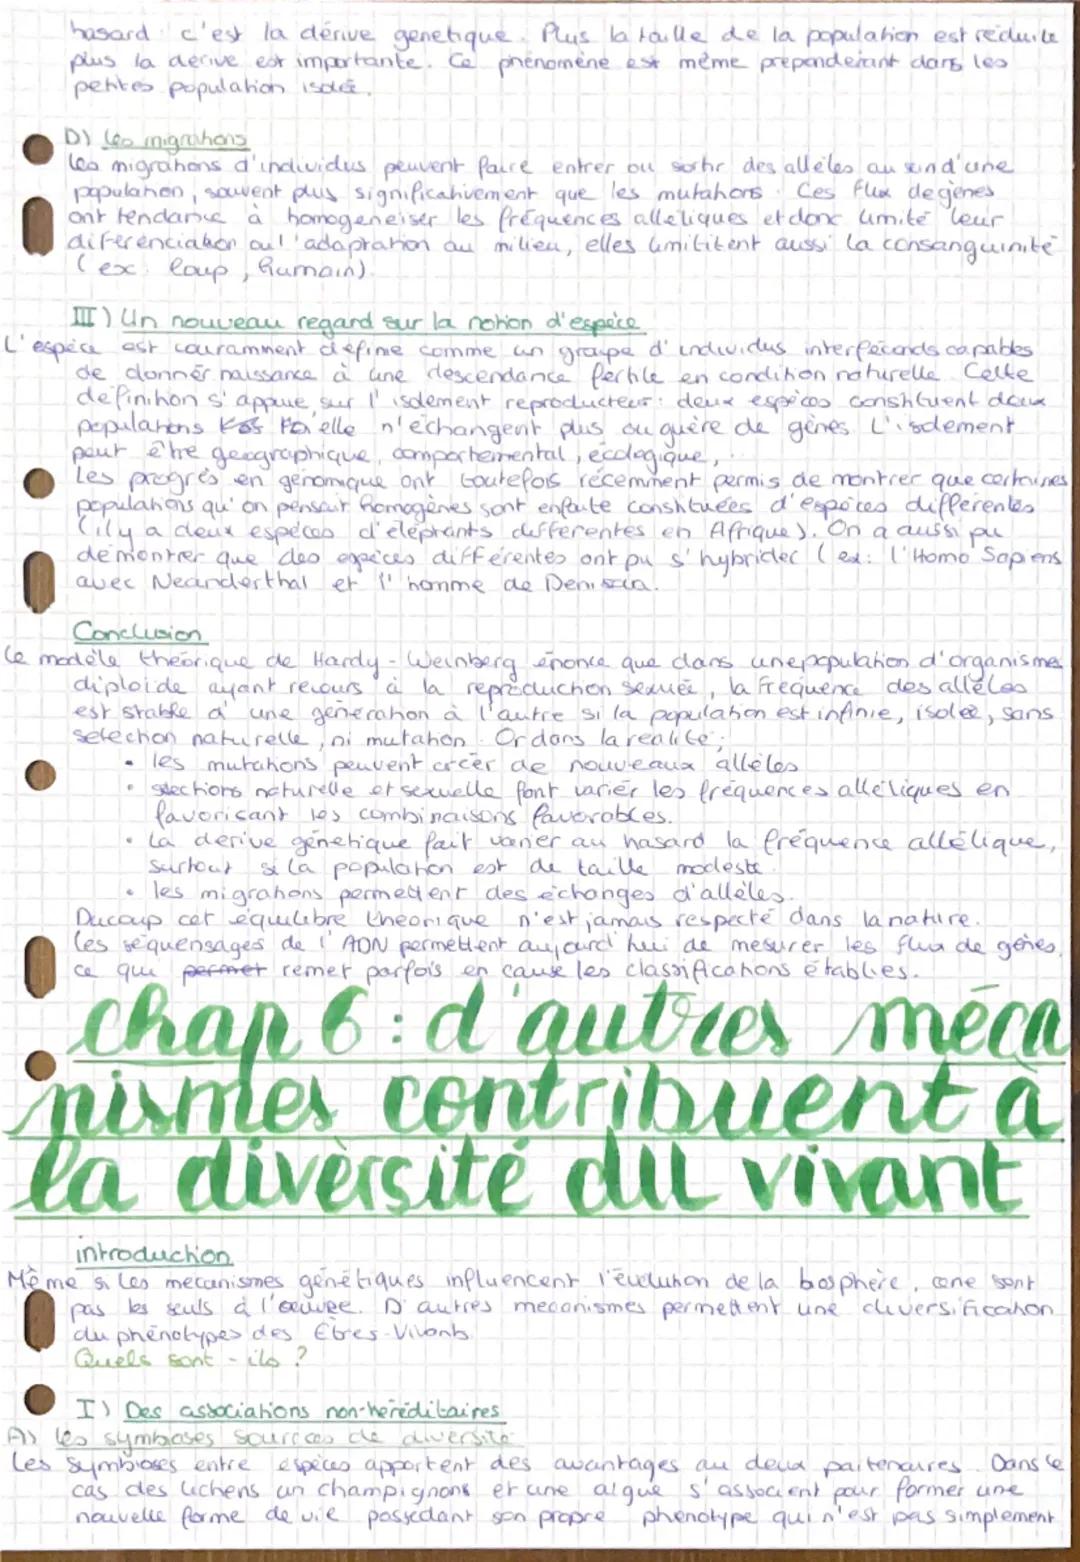 hasard c'est la dérive genetique. Plus la taille de la population est réduite
plus la derive est importante. Ce phénomène est même préponderant dans les
petites population isolée.
D) Les migrations
Les migrations d'individus peuvent faire entrer ou sortir des allèles au sein d'une
population, souvent plus significativement que les mutations. Ces flux de gènes
ont tendance à homogeneiser les fréquences alléliques et donc limité leur
diférenciation ou l'adaptation au milieu, elles limititent aussi la consanguinité
(ex: loup, humain).
III) Un nouveau regard sur la notion d'espèce
L'espèce est couramment définie comme un groupe d'individus interféconds capables
de donner naissance à une descendance fertile en condition naturelle. Cette
definition s'appuie sur l'isolement reproducteur: deux espèces constituent deux
populations elle n'échangent plus ou guère de gènes. L'isolement
peut être geographique, comportemental, écologique, ..
Les progrès en génomique ont toutefois récemment permis de montrer que certaines
populations qu'on pensait homogènes sont enfaite constituées d'espèces différentes
(il y a deux espèces d'éléphants differentes en Afrique). On a aussi pu
démontrer que des espèces différentes ont pu s'hybrider (ex: l'Homo Sapiens
avec Neanderthal et l'homme de Denisova.
Conclusion
Le modèle théorique de Hardy-Weinberg énonce que dans une population d'organismes
diploïde ayant recours à la reproduction sexuée, la frequence des allèles
est stable d'une génération à l'autre si la population est infinie, isolée, sans
selection naturelle, ni mutation. Or dans la realité;
• les mutations peuvent créer de nouveaux allèles
• selections naturelle et sexuelle font varier les fréquences alléliques en
favorisant les combinaisons favorables.
• La derive génétique fait varier au hasard la fréquence allélique,
surtout si la population est de taille modeste.
• les migrations permettent des échanges d'allèles.
Ducoup cet équilibre théorique n'est jamais respecté dans la nature.
Les séquensages de l'ADN permettent aujourd'hui de mesurer les flux de gènes,
ce qui permet remet parfois en cause les classifications établies.
chap 6: d'autres méca
nismes contribuent à
la diversité du vivant
introduction
Même si les mecanismes génétiques influencent l'évolution de la biosphère, ce ne sont
pas les seuls à l'oeuvre. D'autres mecanismes permettent une diversification
du phénotypes des Etres-Vivants.
Quels sont-ils ?
I) Des associations non-héréditaires
A) Les symbioses sources de diversité
Les symbioses entre espèces apportent des avantages au deux partenaires. Dans le
cas des lichens un champignons et une algue s'associent pour former une
nouvelle forme de vie possedant son propre phenotype qui n'est pas simplement